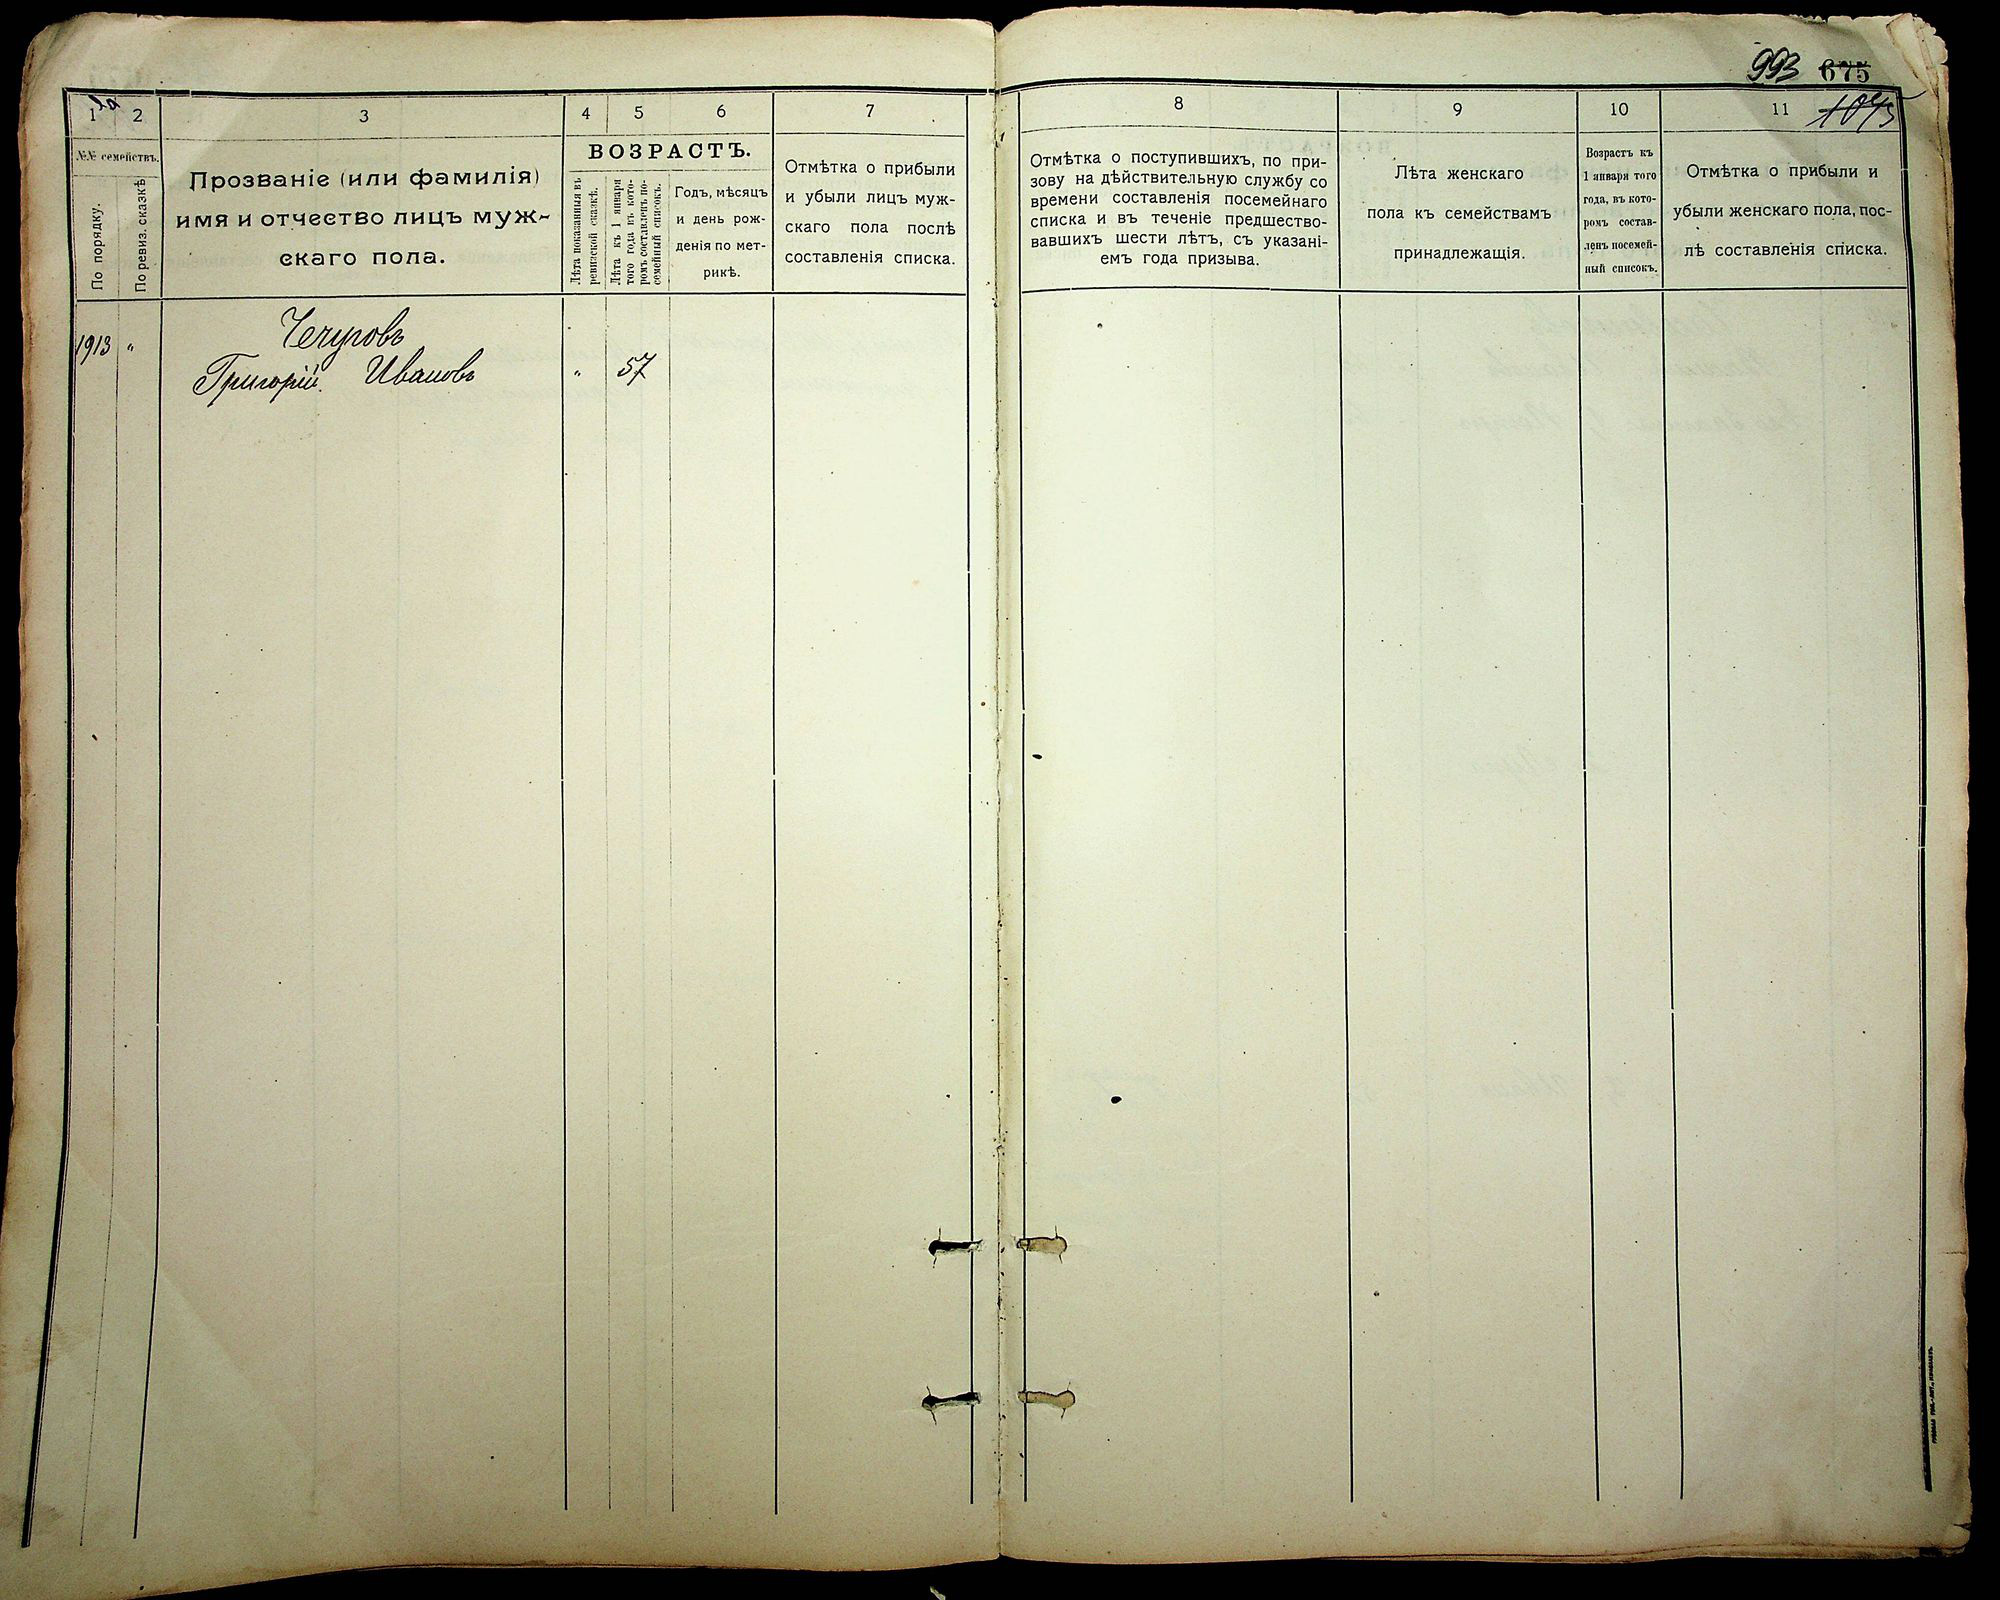 993 675
1045
1 2 3 4 5 6 7
№№ семействъ.
По порядку.
По ревиз. сказкѣ
Прозваніе (или фамилія)
имя и отчество лицъ муж-
скаго пола.
ВОЗРАСТЪ.
Лѣта показанныя въ
ревизской сказкѣ.
Лѣта къ 1 января
того года въ кото-
ромъ составленъ по-
семейный списокъ.
Годъ, мѣсяцъ
и день рож-
денія по мет-
рикѣ.
Отмѣтка о прибыли
и убыли лицъ муж-
скаго пола послѣ
составленія списка.
1913 „ Чечуговъ
Григорій Ивановъ „ 57
8 9 10 11
Отмѣтка о поступившихъ, по при-
зову на дѣйствительную службу со
времени составленія посемейнаго
списка и въ теченіе предшество-
вавшихъ шести лѣтъ, съ указані-
емъ года призыва.
Лѣта женскаго
пола къ семействамъ
принадлежащія.
Возрастъ къ
1 января того
года, въ кото-
ромъ состав-
ленъ посемей-
ный списокъ.
Отмѣтка о прибыли и
убыли женскаго пола, пос-
лѣ составленія списка.